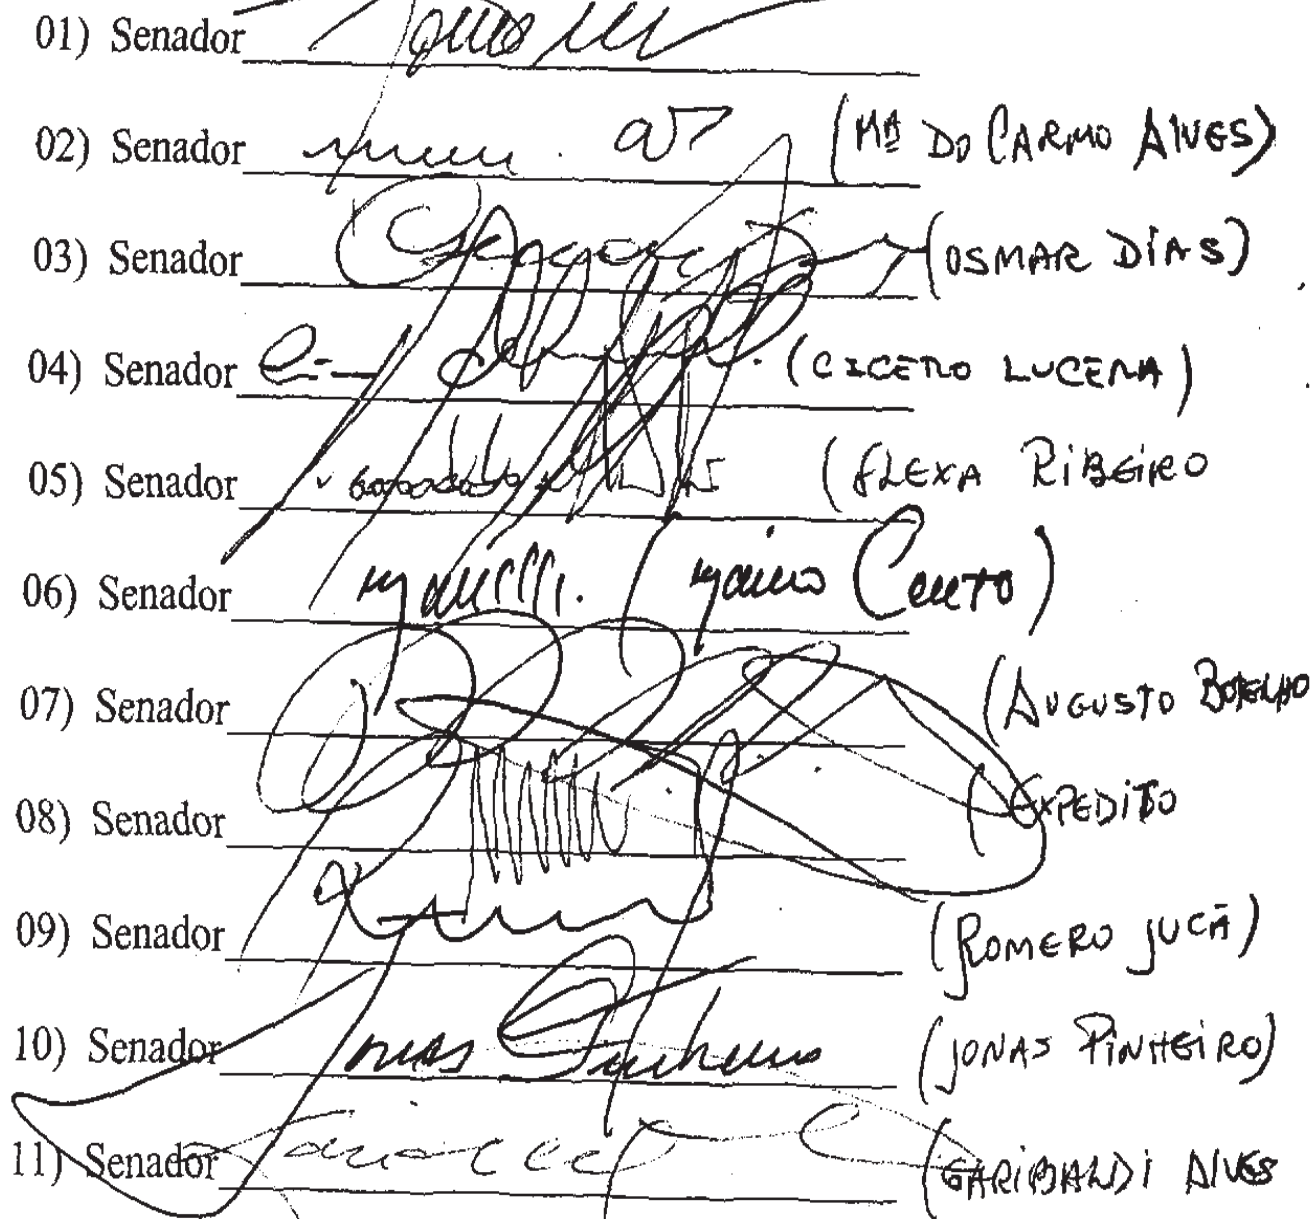 01) Senador
02) Senador (Mª DO CARMO ALVES)
03) Senador (OSMAR DIAS)
04) Senador (CICERO LUCENA)
05) Senador (FLEXA RIBEIRO
06) Senador Mário Couto)
07) Senador (AUGUSTO BOTELHO
08) Senador (EXPEDITO
09) Senador (ROMERO JUCÁ)
10) Senador Jonas Pinheiro (JONAS PINHEIRO)
11) Senador (GARIBALDI ALVES